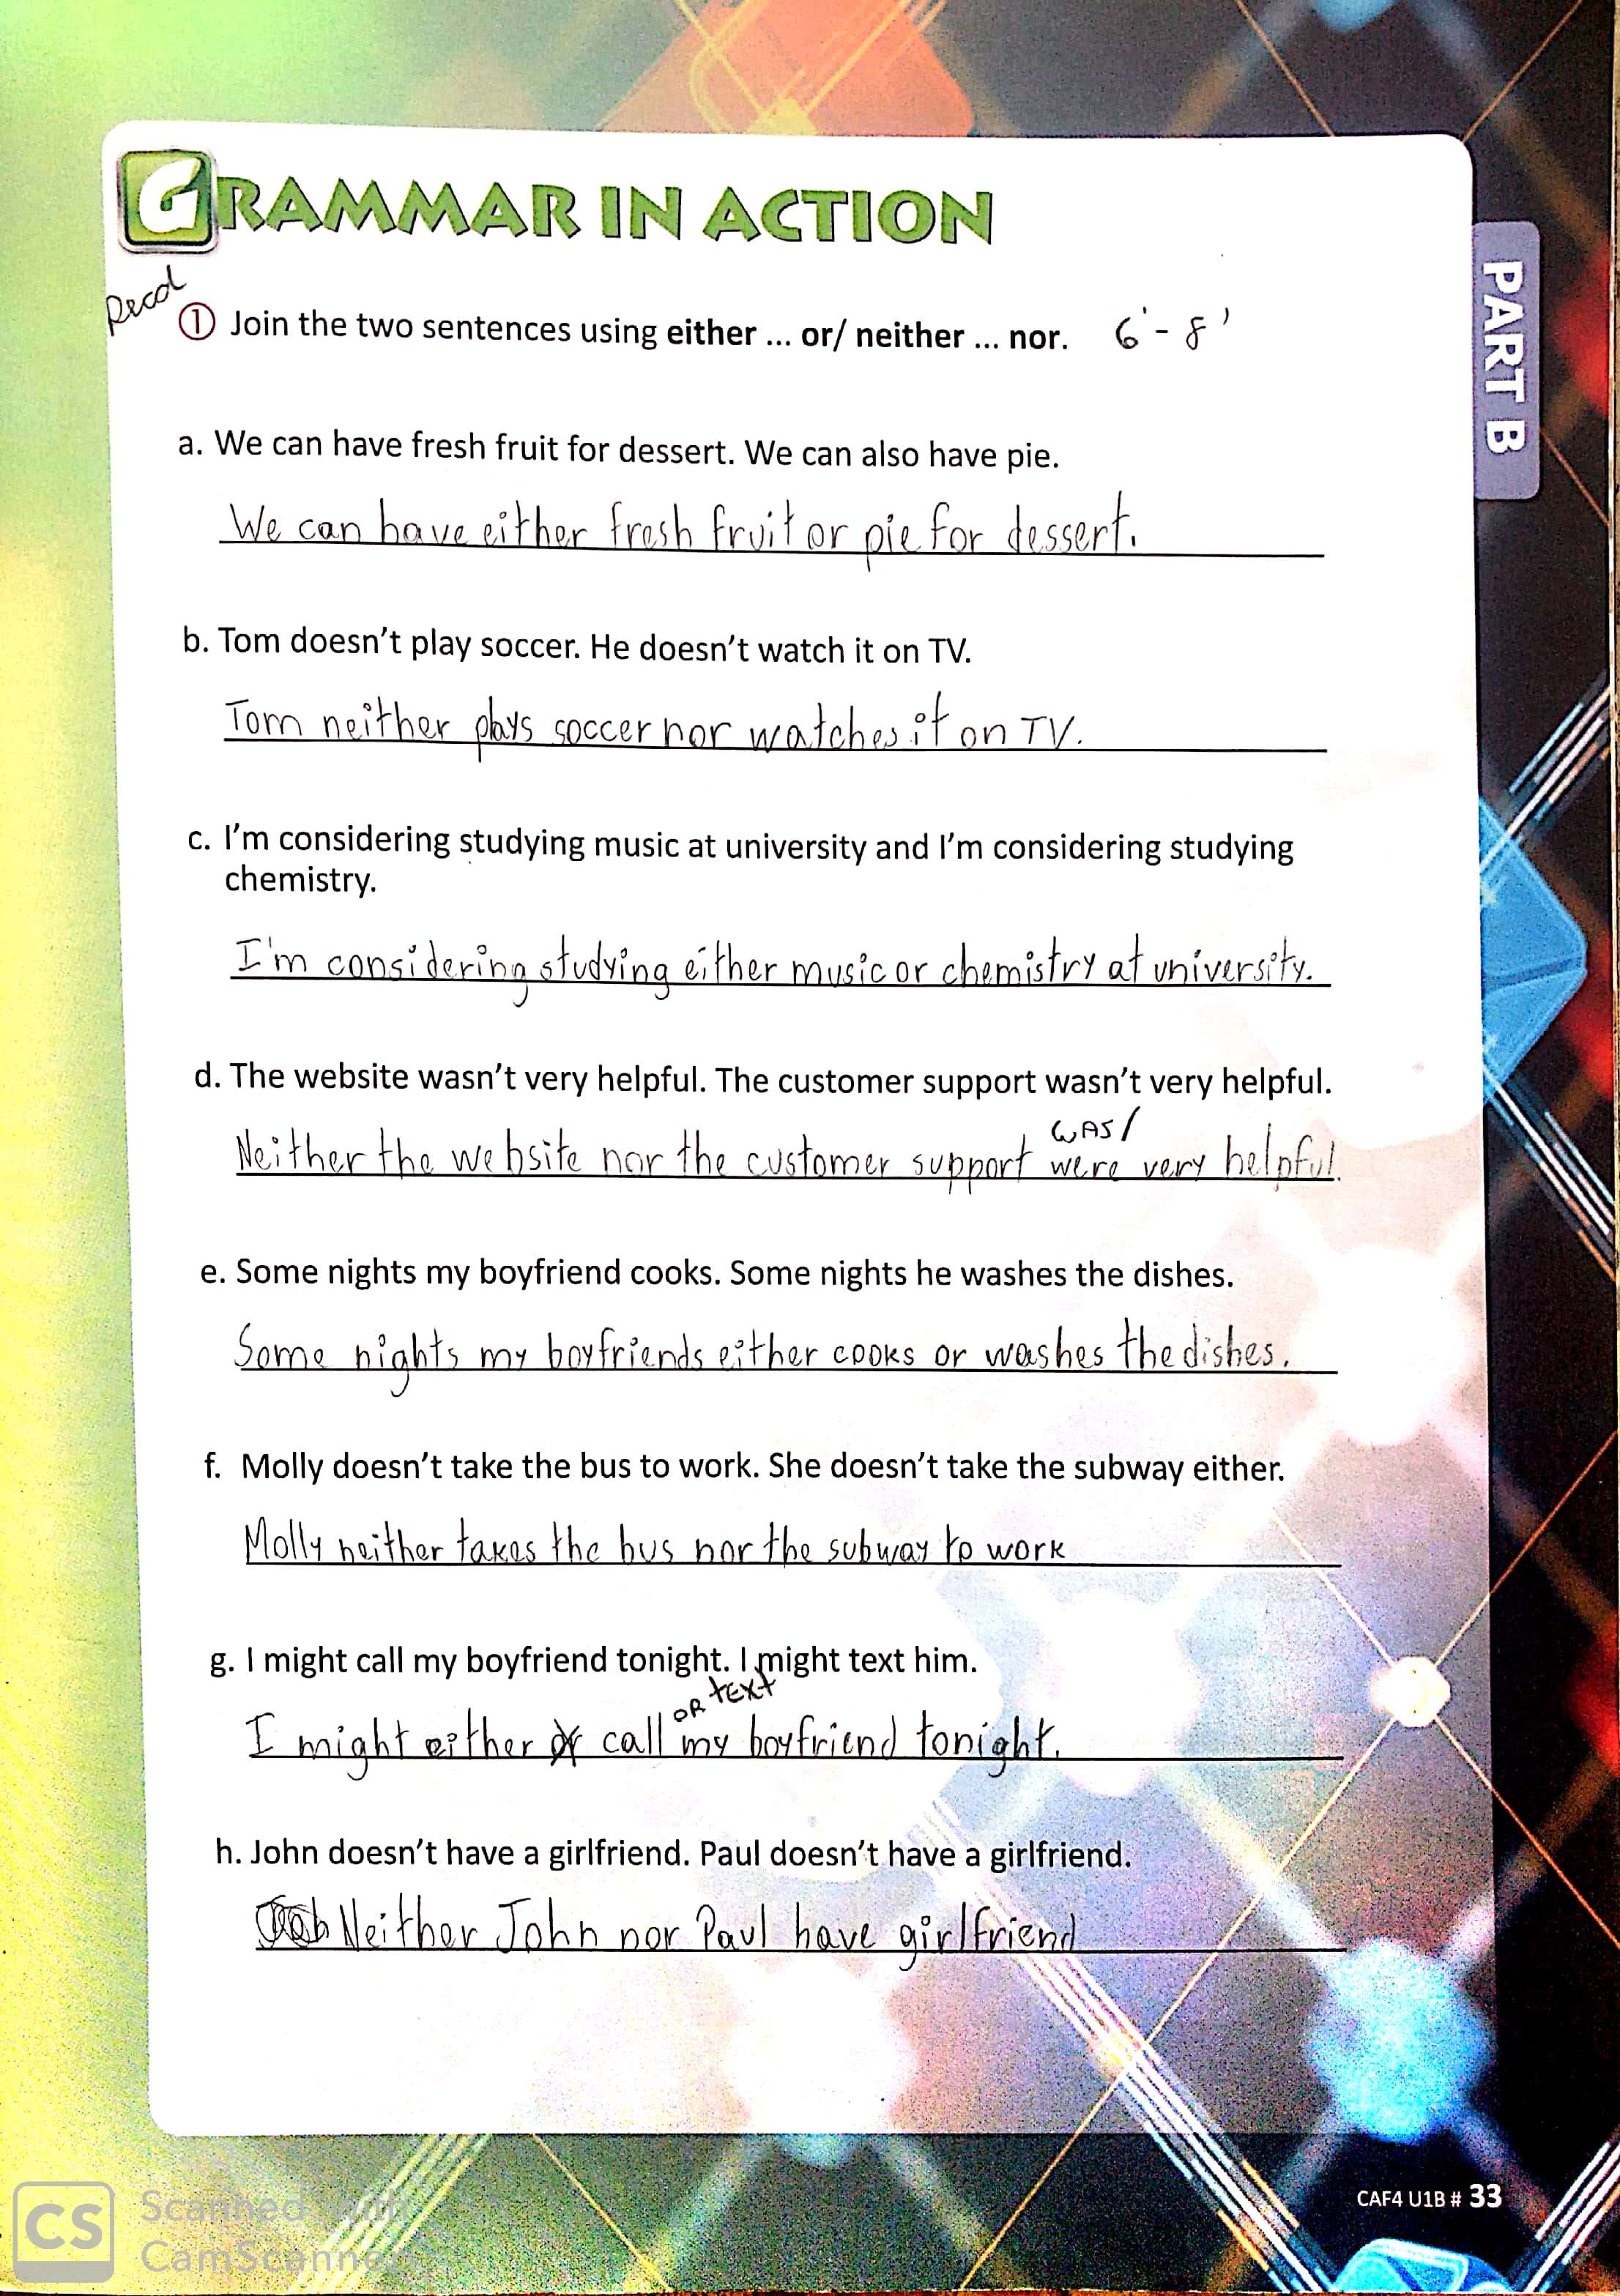 GRAMMAR IN ACTION
Read
① Join the two sentences using either ... or/ neither ... nor. 6'-8'
PART B
a. We can have fresh fruit for dessert. We can also have pie.
We can have either fresh fruit or pie for dessert.
b. Tom doesn't play soccer. He doesn't watch it on TV.
Tom neither plays soccer nor watches it on TV.
c. I'm considering studying music at university and I'm considering studying
chemistry.
I'm considering studying either music or chemistry at university.
d. The website wasn't very helpful. The customer support wasn't very helpful.
was/
Neither the website nor the customer support were very helpful.
e. Some nights my boyfriend cooks. Some nights he washes the dishes.
Some nights my boyfriends either cooks or washes the dishes.
f. Molly doesn't take the bus to work. She doesn't take the subway either.
Molly neither takes the bus nor the subway to work
g. I might call my boyfriend tonight. I might text him.
or text
I might either call my boyfriend tonight.
h. John doesn't have a girlfriend. Paul doesn't have a girlfriend.
Neither John nor Paul have girlfriend
CAF4 U1B # 33
CS Scanned with
CamScanner